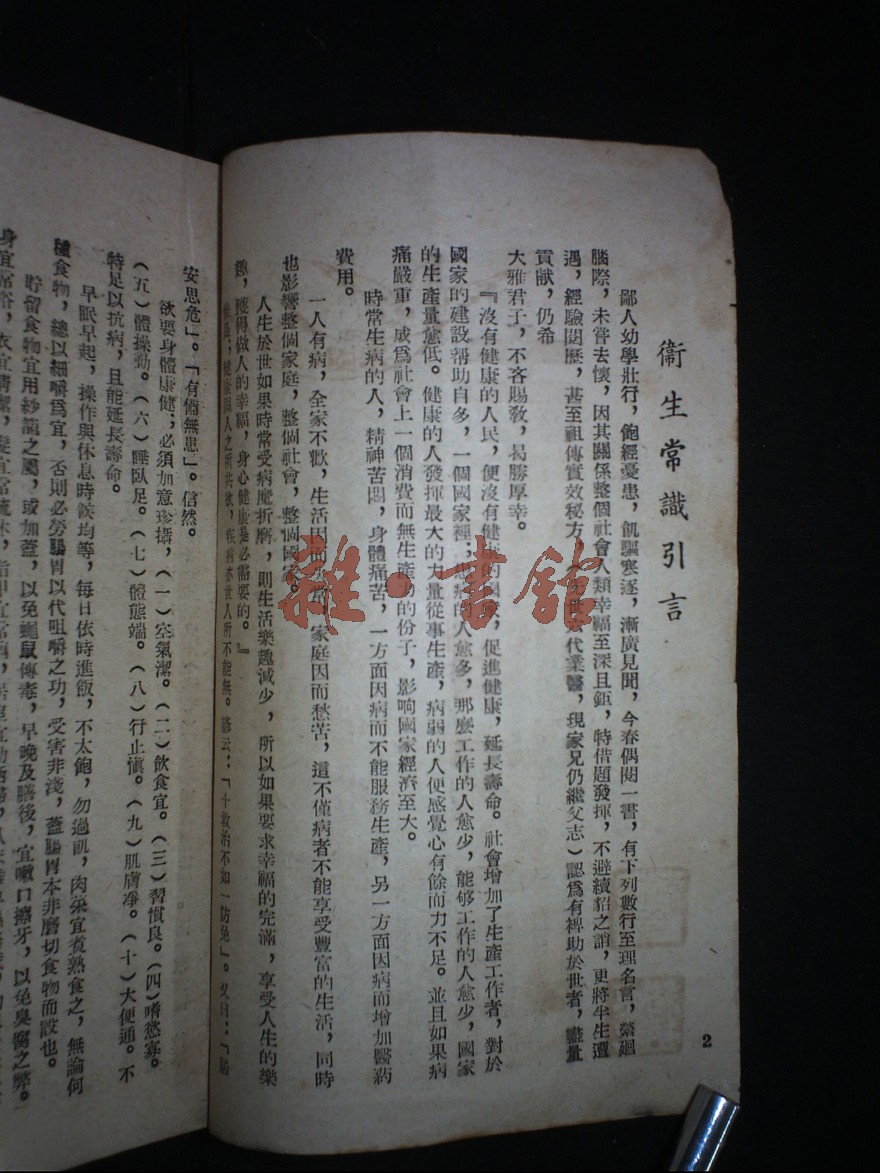 衞生常識引言
鄙人幼學壯行，飽經憂患，飢驅寒逐，漸廣見聞，今春偶閱一書，有下列數行至理名言，縈廻
腦際，未嘗去懷，因其關係整個社會人類幸福至深且鉅，特借題發揮，不避續貂之誚，更將半生遭
遇，經驗閱歷，甚至祖傳實效秘方，代業醫，現家兄仍繼父志）認爲有裨助於世者，盡量
貢献，仍希
大雅君子，不吝賜敎，曷勝厚幸。
『沒有健康的人民，便沒有健康的國家，促進健康，延長壽命。社會增加了生產工作者，對於
國家的建設帮助自多，一個國家裡，患病的人愈多，那麼工作的人愈少，能够工作的人愈少，國家
的生產量愈低。健康的人發揮最大的力量從事生產，病弱的人便感覺心有餘而力不足。並且如果病
痛嚴重，成爲社會上一個消費而無生產力的份子，影响國家經濟至大。
時常生病的人，精神苦悶，身體痛苦，一方面因病而不能服務生產，另一方面因病而增加醫葯
費用。
一人有病，全家不歡，生活因而，家庭因而愁苦，這不僅病者不能享受豐富的生活，同時
也影響整個家庭，整個社會，整個國家。
人生於世如果時常受病魔折磨，則生活樂趣減少，所以如果要求幸福的完滿，享受人生的樂
趣，獲得做人的幸福，身心健康是必需要的。』
健康固人之所共欲，疾病亦世人所不能無。諺云：「十救治不如一防免」。又曰：「居
安思危」。「有備無患」。信然。
欲要身體康健，必須加意珍攝，（一）空氣潔。（二）飲食宜。（三）習慣良。（四）嗜慾寡。
（五）體操勤。（六）睡臥足。（七）體態端。（八）行止愼。（九）肌膚凈。（十）大便通。不
特足以抗病，且能延長壽命。
早眠早起，操作與休息時候均等，每日依時進飯，不太飽，勿過飢，肉菜宜煮熟食之，無論何
種食物，總以細嚼爲宜，否則必勞腸胃以代咀嚼之功，受害非淺，蓋腸胃本非磨切食物而設也。
貯留食物宜用紗籠之屬，或加蓋，以免蠅鼠傳毒，早晚及膳後，宜嗽口擦牙，以免臭腐之弊。
身宜常浴，衣宜清潔，髮宜常
2
雜·書館